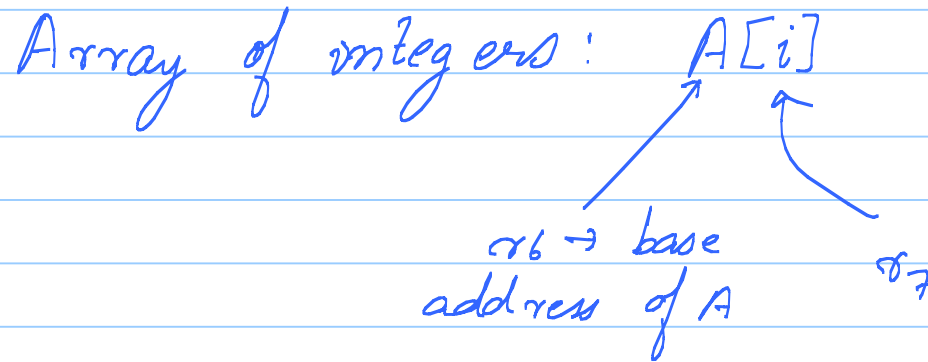 Array of integers: A[i]
r6 → base
address of A
r7